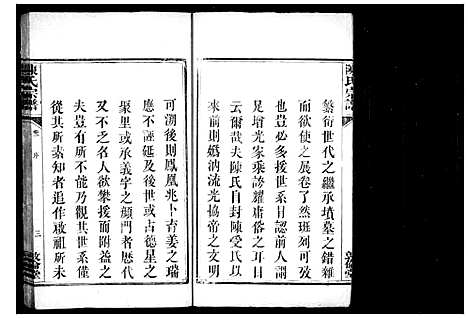 陳氏宗譜
蕃衍世代之繼承墳墓之錯雜
而欲使之展卷了然班列可攷
也豈必多援世系日認前人謂
足增光家乘誇耀庸俗之耳目
云爾哉夫陳氏自封陳受氏以
來前則媯汭流光協帝之文明
可溯後則鳳凰兆卜吉姜之瑞
應不誣延及後世或占德星之
聚里或承義字之顏門者歷代
又不乏名人欲攀援而附益之
夫豈有所不能乃觀其世系僅
從其所素知者追作敢祖所未
陳氏宗譜
卷 序
三
敦倫堂